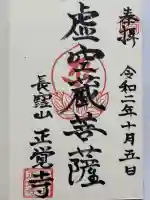 奉拝
令和二年十月五日
虚空蔵菩薩
長窪山
正覚寺